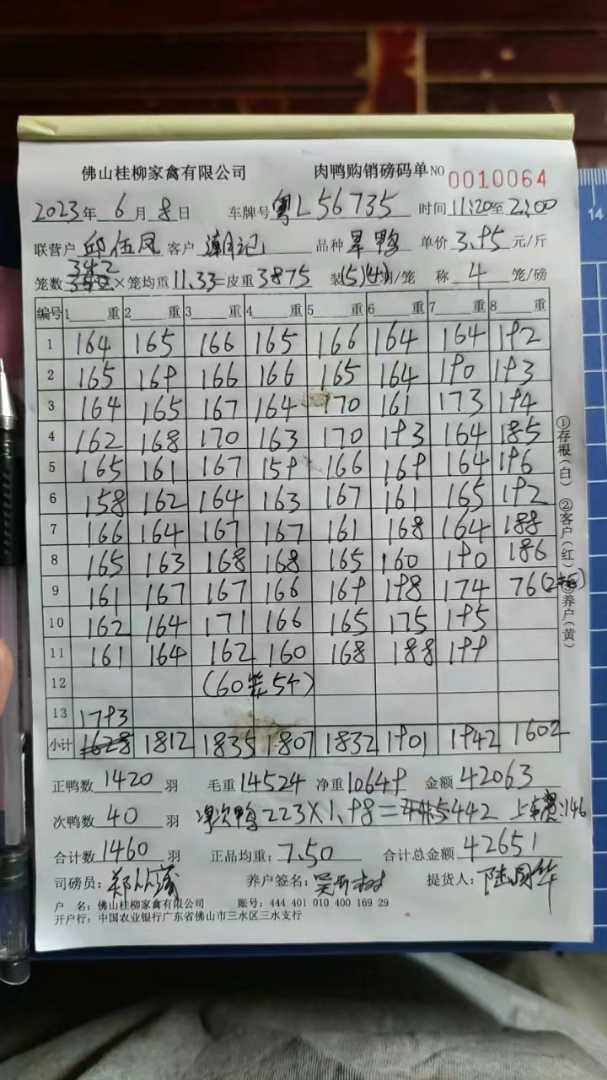 佛山桂柳家禽有限公司 肉鸭购销磅码单 NO 0010064
2023年 6月 8日 车牌号 粤L56735 时间 11:20至2:00
联营户 邱伍凤 客户 潮记 品种 旱鸭 单价 3.95 元/斤
笼数 342 ×笼均重 11.33=皮重 3875 装(5)(4)羽/笼 称 4 笼/磅
编号 1 重 2 重 3 重 4 重 5 重 6 重 7 重 8 重
1 164 165 166 165 166 164 164 192
2 165 169 166 166 165 164 190 193
3 164 165 167 164 170 161 173 194
4 162 168 170 163 170 193 164 185
5 165 161 167 159 166 169 164 196
6 158 162 164 163 167 161 165 192
7 166 164 167 167 161 168 164 188
8 165 163 168 168 165 160 190 186
9 161 167 167 166 169 198 174 76
10 162 164 171 166 165 175 195
11 161 164 162 160 168 188 199
12 (60笼54)
13 1793
小计 1628 1812 1835 1807 1832 1901 1942 1602
①存根(白) ②客户(红) ③养户(黄)
正鸭数 1420 羽 毛重 14524 净重 10649 金额 42063
次鸭数 40 羽 净次鸭 223×1.98=442 上车费:146
合计数 1460 羽 正品均重: 7.50 合计总金额 42651
司磅员: 养户签名: 提货人:
户 名: 佛山桂柳家禽有限公司 账号: 444 401 010 400 169 29
开户行: 中国农业银行广东省佛山市三水区三水支行
14